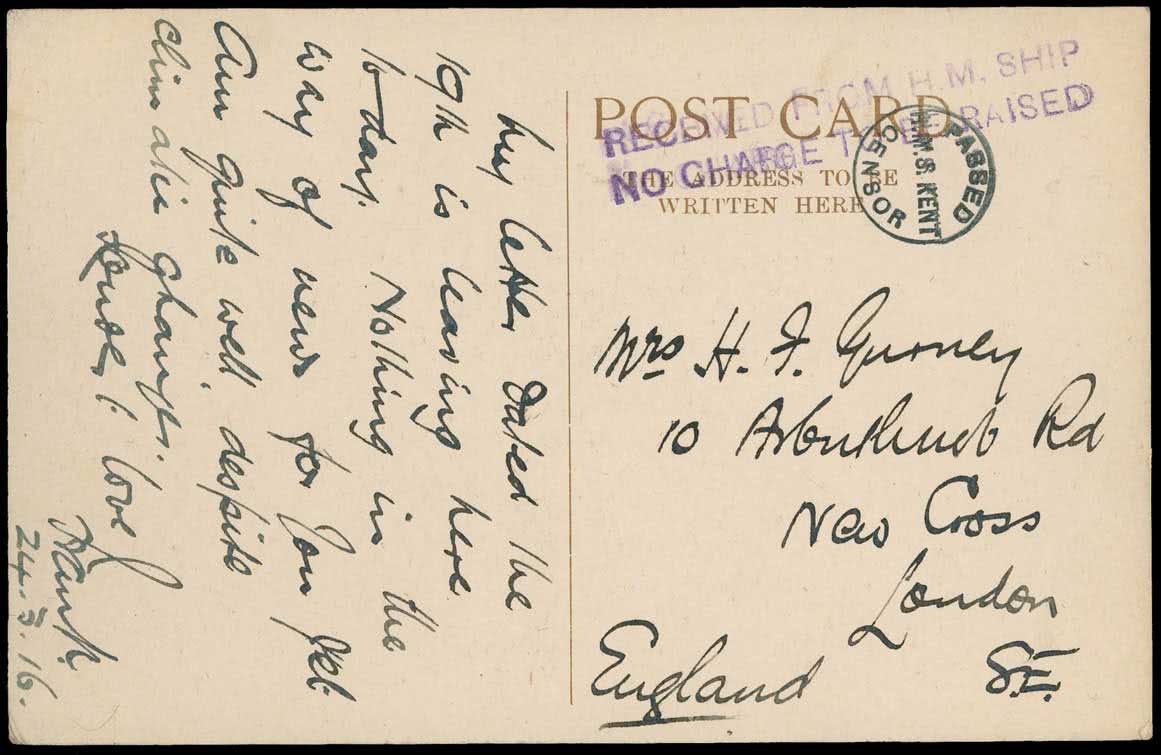 My letter dated the
19th is leaving here
to-day. Nothing in the
way of news for you yet
Am quite well despite
climatic changes.
Fondest love
Frank
24.3.16.
POST CARD
THE ADDRESS TO BE
WRITTEN HERE
RECEIVED FROM H.M. SHIP
NO CHARGE TO BE RAISED
PASSED
H.M.S. KENT
CENSOR
Mrs H. F. Gurney
10 Arbuthnot Rd
New Cross
London
S.E.
England